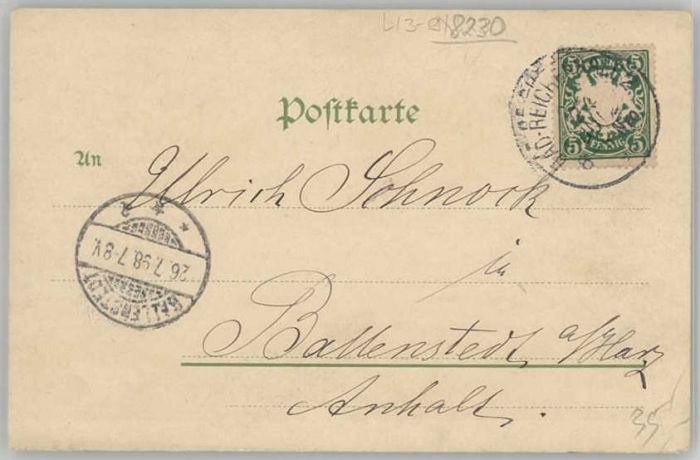 L13-
8230
Postkarte
An
BAD-REICH
5 5
5 PFENNIG 5
Ulrich Schnock
in
Ballenstedt a/Harz
Anhalt.
BALLENSTEDT
26.7.98.7-8V.
35,-